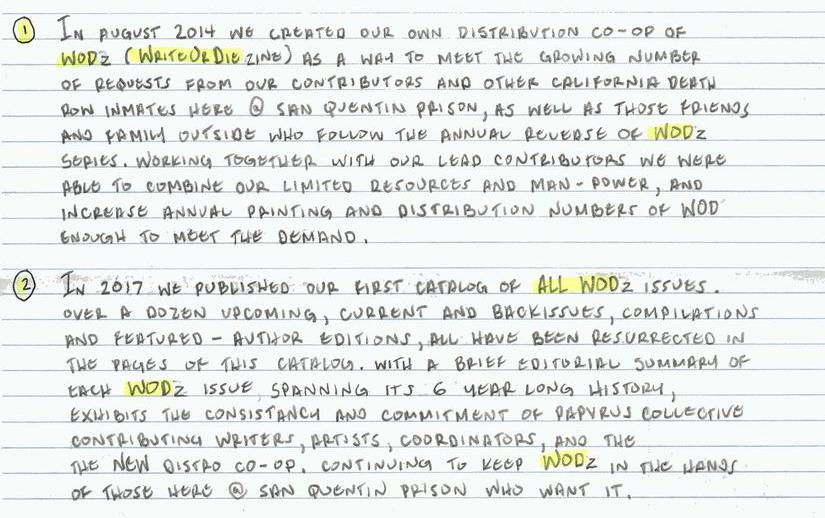 1 IN AUGUST 2014 WE CREATED OUR OWN DISTRIBUTION CO-OP OF
WODZ (WRITEORDIE ZINE) AS A WAY TO MEET THE GROWING NUMBER
OF REQUESTS FROM OUR CONTRIBUTORS AND OTHER CALIFORNIA DEATH
ROW INMATES HERE @ SAN QUENTIN PRISON, AS WELL AS THOSE FRIENDS
AND FAMILY OUTSIDE WHO FOLLOW THE ANNUAL REVERSE OF WODZ
SERIES. WORKING TOGETHER WITH OUR LEAD CONTRIBUTORS WE WERE
ABLE TO COMBINE OUR LIMITED RESOURCES AND MAN-POWER, AND
INCREASE ANNUAL PRINTING AND DISTRIBUTION NUMBERS OF WOD
ENOUGH TO MEET THE DEMAND.
2 IN 2017 WE PUBLISHED OUR FIRST CATALOG OF ALL WODZ ISSUES.
OVER A DOZEN UPCOMING, CURRENT AND BACKISSUES, COMPILATIONS
AND FEATURED-AUTHOR EDITIONS, ALL HAVE BEEN RESURRECTED IN
THE PAGES OF THIS CATALOG. WITH A BRIEF EDITORIAL SUMMARY OF
EACH WODZ ISSUE, SPANNING ITS 6 YEAR LONG HISTORY,
EXHIBITS THE CONSISTANCY AND COMMITMENT OF PAPYRUS COLLECTIVE
CONTRIBUTING WRITERS, ARTISTS, COORDINATORS, AND THE
THE NEW DISTRO CO-OP. CONTINUING TO KEEP WODZ IN THE HANDS
OF THOSE HERE @ SAN QUENTIN PRISON WHO WANT IT.